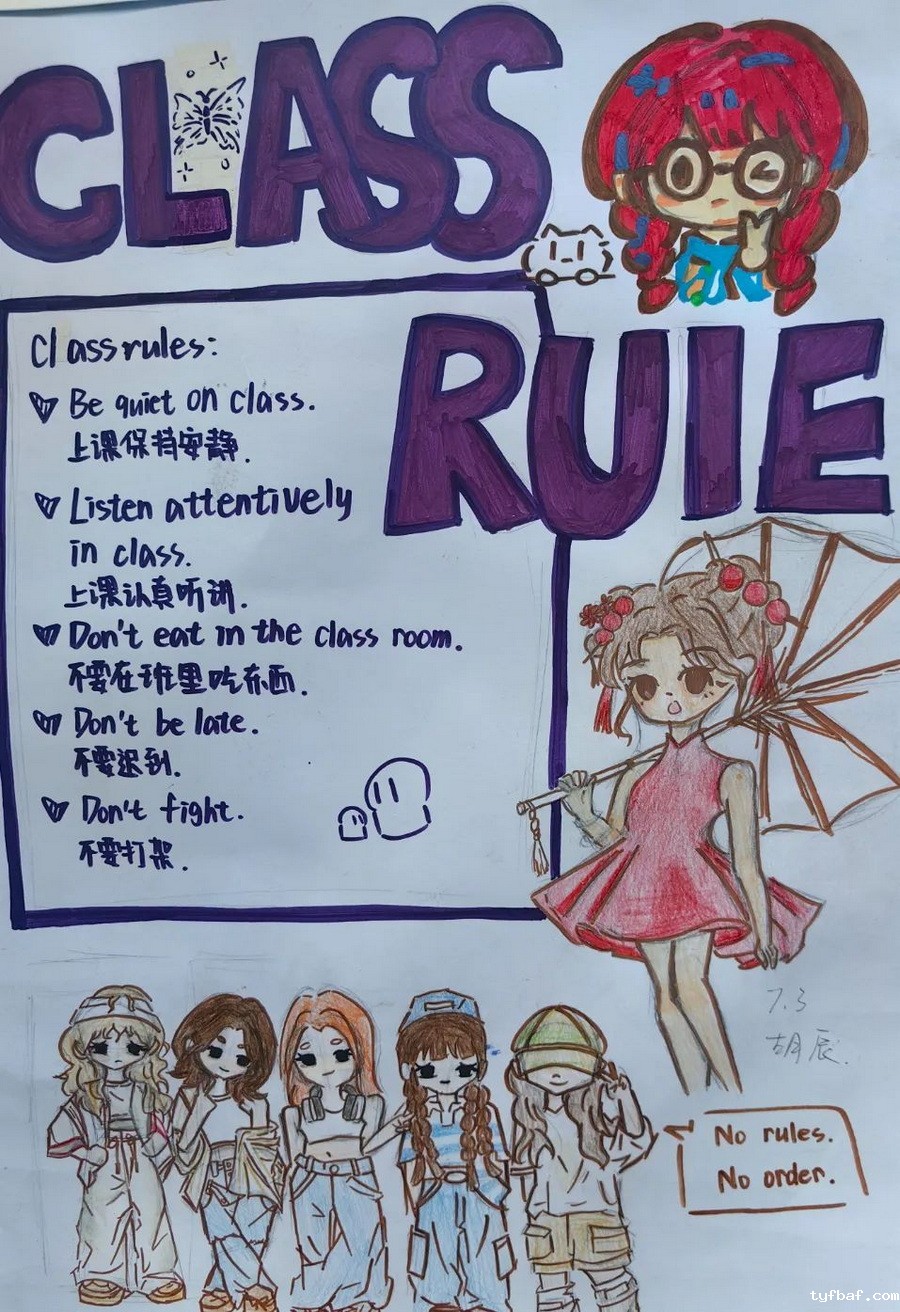 CLASS
RUlE
Class rules:
Be quiet on class.
上课保持安静.
Listen attentively
in class.
上课认真听讲.
Don't eat in the class room.
不要在班里吃东西.
Don't be late.
不要迟到.
Don't fight.
不要打架.
7.3
胡辰.
No rules.
No order.
tyfbaf.com